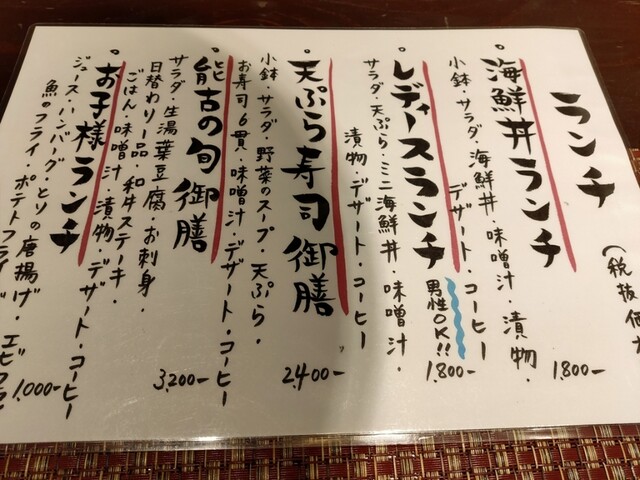 ランチ
(税抜価
海鮮丼ランチ
小鉢・サラダ・海鮮丼・味噌汁・漬物・
デザート・コーヒー
1,800-
レディースランチ
男性OK!!
サラダ・天ぷら・ミニ海鮮丼・味噌汁・
漬物・デザート・コーヒー
1,800-
天ぷら寿司御膳
小鉢・サラダ・野菜のスープ・天ぷら・
お寿司6貫・味噌汁・デザート・コーヒー
2,400-
能古の旬御膳
サラダ・生湯葉豆腐・お刺身・
日替わり一品・和牛ステーキ・
ごはん・味噌汁・漬物・デザート・コーヒー
3,200-
お子様ランチ
ジュース・ハンバーグ・とりの唐揚げ・
魚のフライ・ポテトフライ・エビフライ
1,000-